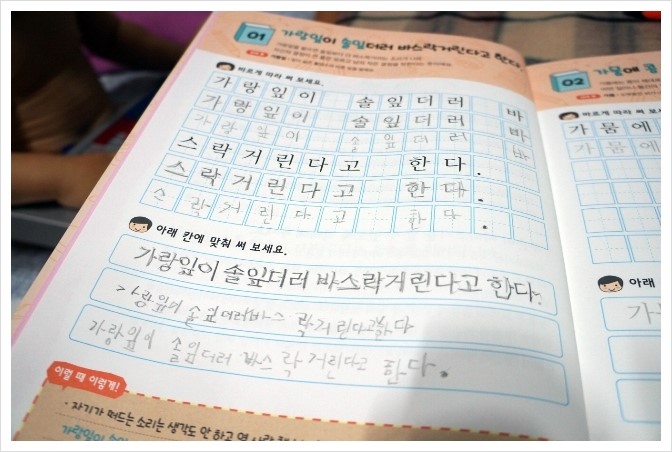 01 가랑잎이 솔잎더러 바스락거린다고 한다
바르게 따라 써 보세요.
가랑잎이 솔잎더러 바
가랑잎이 솔잎더러 바
가랑잎이 솔잎더러 바
스락거린다고 한다.
스락거린다고 한다.
스락거린다고 한다.
아래 칸에 맞춰 써 보세요.
가랑잎이 솔잎더러 바스락거린다고 한다.
가랑잎이 솔잎더러바스 락거린다고한다
가랑잎이 솔잎더러 바스락거린다고 한다.
이럴 때 이렇게!
· 자기가 떠드는 소리는 생각도 안 하고 옆 사람
가랑잎이
02 가뭄에 콩
바르게 따라 써 보
가뭄에
가뭄에
아래
가